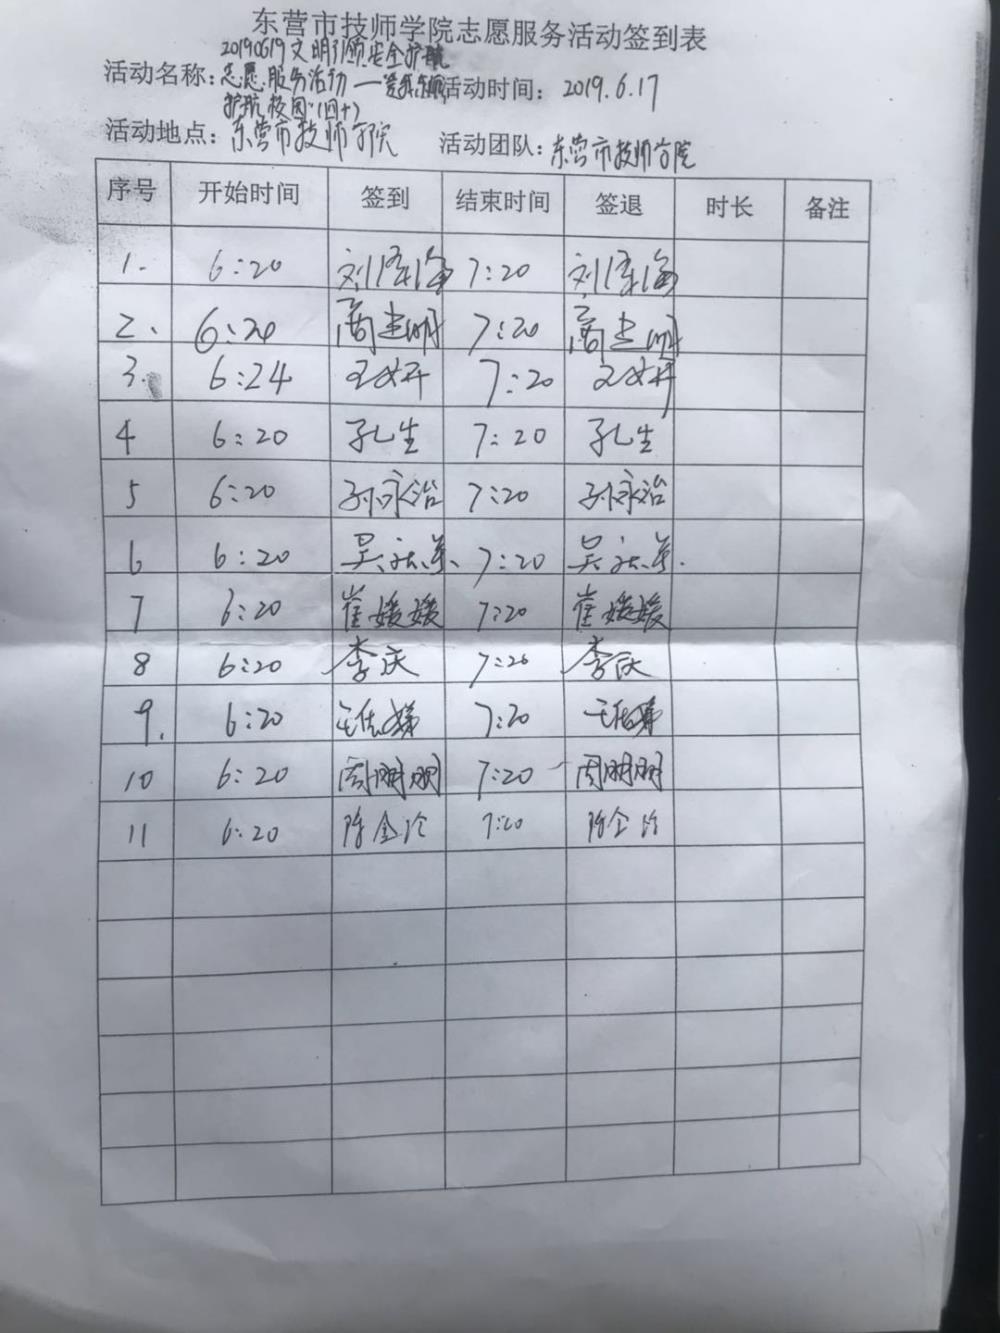 东营市技师学院志愿服务活动签到表
活动名称：20190619文明引领安全护航
志愿服务活动 — 活动时间：2019.6.17
护航校园"(四十)
活动地点：东营市技师学院 活动团队：东营市技师学院
序号 开始时间 签到 结束时间 签退 时长 备注
1. 6:20 刘泽海 7:20 刘泽海
2. 6:20 商建明 7:20 商建明
3. 6:24 王妍 7:20 王妍
4 6:20 孔生 7:20 孔生
5 6:20 孙永治 7:20 孙永治
6 6:20 吴 7:20 吴
7 6:20 崔媛媛 7:20 崔媛媛
8 6:20 李庆 7:20 李庆
9. 6:20 7:20
10 6:20 周朋朋 7:20 周朋朋
11 6:20 陈金 7:20 陈金